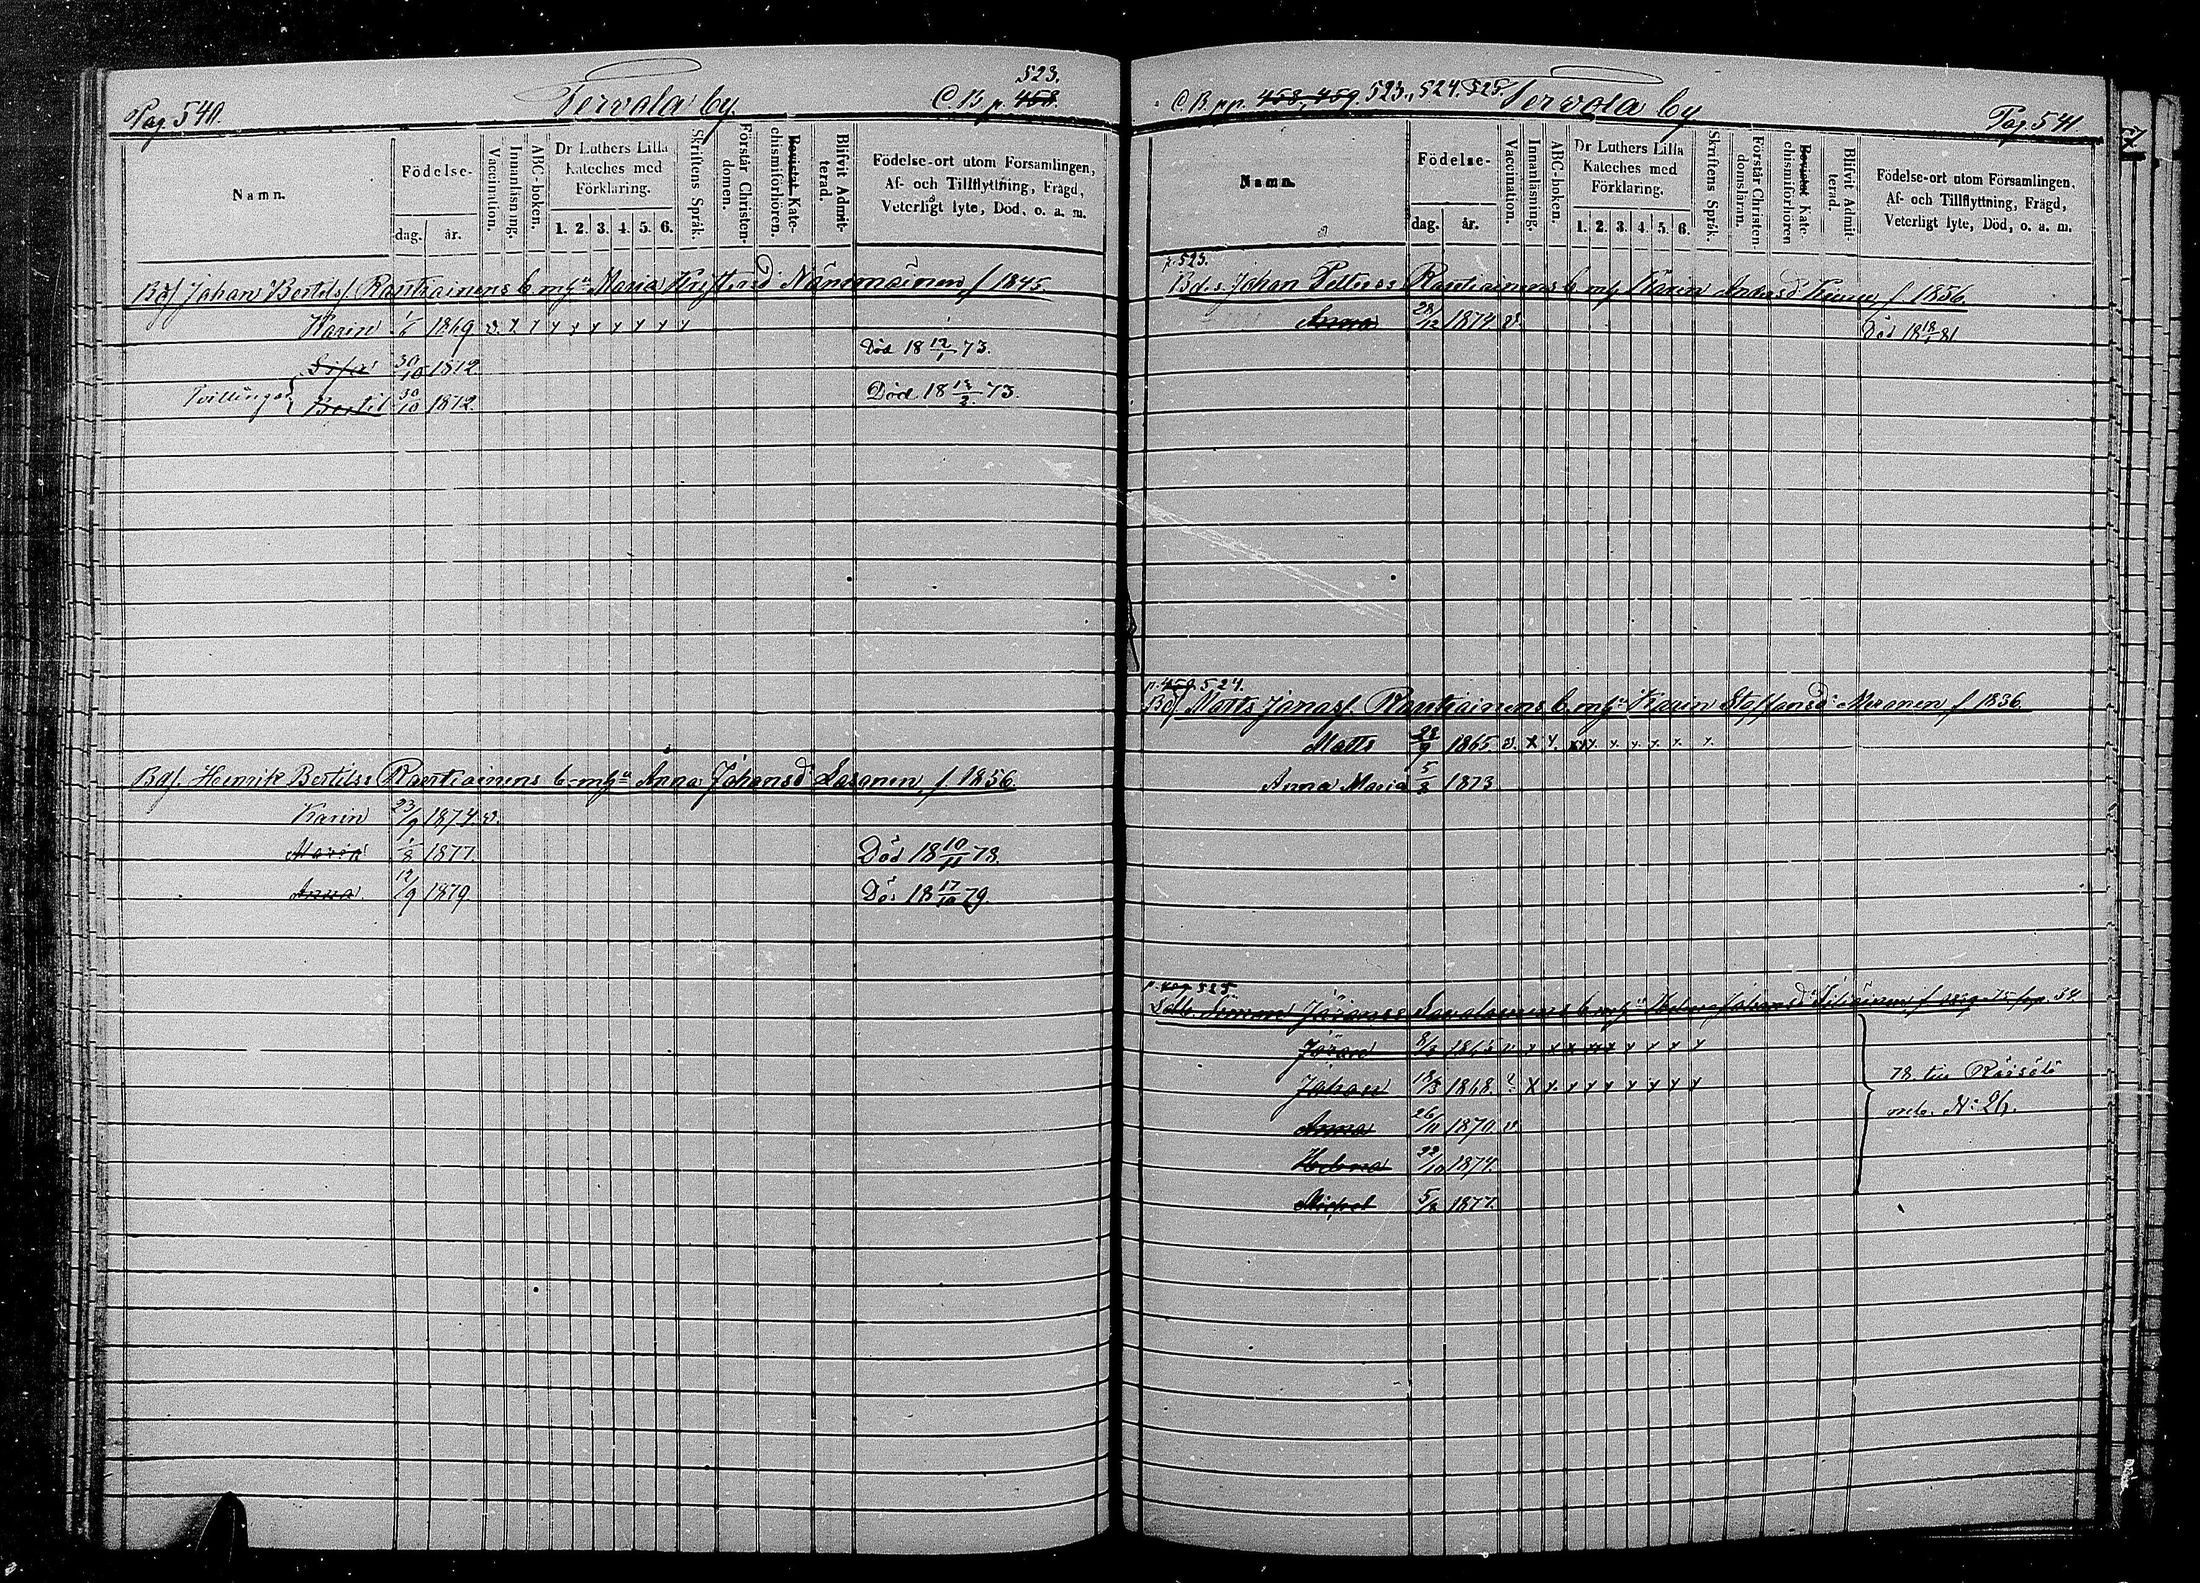 Pag 540.
Tervola by.
523.
C.B. p. 458.
Namn.
Födelse-
dag. år.
Vaccination.
Innanläsning.
ABC-boken.
Dr Luthers Lilla
Kateches med
Förklaring.
1. 2. 3. 4. 5. 6.
Skriftens Språk.
Förstår Christen-
domen.
Bevistat Kate-
chismiförhören.
Blifvit Admit-
terad.
Födelse-ort utom Församlingen,
Af- och Tillflyttning, Frägd,
Veterligt lyte, Död, o. a. m.
Bdf Johan Bertilsf Rautiainens b m hu Maria Christ
Karin 1/6 1869 v. x x x x x x x x x
30/10 1872 Död 18 12/1 73.
Tvillingar Bertil 30/10 1872. Död 18 13/2 73.
Bdf. Henrik Bertilss Rautiainens b-mhu Anna Johansd Sasanen, f. 1856.
Karin 23/9 1874. v.
Maria 1/3 1877. Död 18 10/11 78.
Anna 12/9 1879. Död 18 17/10 79.
C.B. pp. 458, 459. 523., 524. 525. Tervola by
Pag. 541.
Namn.
Födelse-
dag. år.
Vaccination.
Innanläsning.
ABC-boken.
Dr Luthers Lilla
Kateches med
Förklaring.
1. 2. 3. 4. 5. 6.
Skriftens Språk.
Förstår Christen-
domsläran.
Bevistat Kate-
chismiförhören
Blifvit Admit-
terad.
Födelse-ort utom Församlingen,
Af- och Tillflyttning, Frägd,
Veterligt lyte, Död, o. a. m.
p. 523.
Bd. s. Johan Petterss Rautiainens b mh Karin Andersd f. 1856.
Anna 28/12 1874 v. Död 18 18/1 81
p. 459. 524.
Bdf Matts Jonasf. Rautiainens b. mhu Karin Staffansd f 1836.
Matts 28/9 1865 v. x x. xxx. x. x. x. x. x.
Anna Maria 5/8 1873
p. 525
Simon Savolainens b mhu Helena Johansd
Jöran 8/3 1863 v x x x xx x x x x
Johan 18/3 1868. x x x x x x x x x
Anna 26/11 1870 v
Helena 22/10 1874.
Michel 5/8 1877.
78. till Räisälä
mb. N: 26.